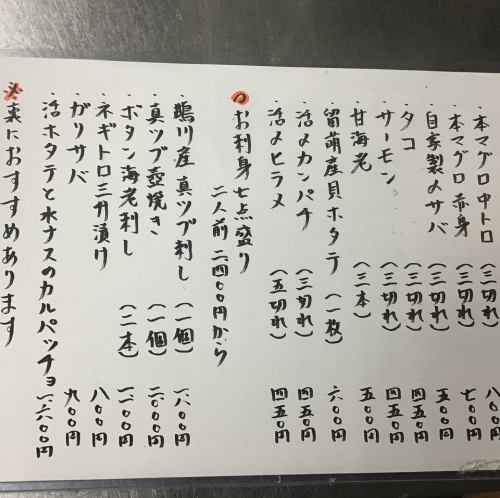 ・本マグロ中トロ（三切れ）八〇〇円
・本マグロ赤身（三切れ）七〇〇円
・自家製〆サバ（三切れ）五〇〇円
・タコ（三切れ）四五〇円
・サーモン（三切れ）四五〇円
・甘海老（三本）五〇〇円
・留萌産貝ホタテ（一枚）六〇〇円
・活〆カンパチ（三切れ）四五〇円
・活〆ヒラメ（五切れ）四五〇円
〇お刺身七点盛り
二人前 二四〇〇円から
・鵡川産真ツブ刺し（一個）一八〇〇円
・真ツブ壺焼き（一個）二〇〇〇円
・ボタン海老刺し（二本）一八〇〇円
・ネギトロ三升漬け 八〇〇円
・ガリサバ 九〇〇円
・活ホタテと水ナスのカルパッチョ 一六〇〇円
※裏におすすめあります